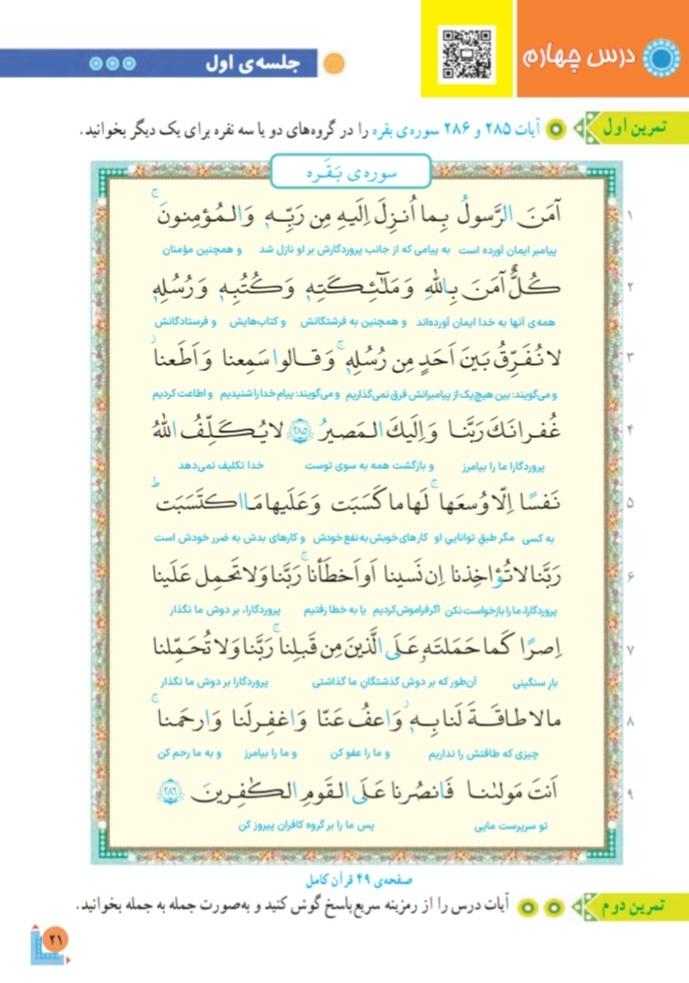 درس چهارم
جلسه‌ی اول
تمرین اول
آیات ۲۸۵ و ۲۸۶ سوره‌ی بقره را در گروه‌های دو یا سه نفره برای یک دیگر بخوانید.
سوره‌ی بَقَره
۱ آمَنَ الرَّسولُ بِما اُنزِلَ اِلَيهِ مِن رَبِّهٖ وَالمُؤمِنونَ ۚ
پیامبر ایمان آورده است به پیامی که از جانب پروردگارش بر او نازل شد و همچنین مؤمنان
۲ كُلٌّ آمَنَ بِاللّٰهِ وَمَلٰٓئِكَتِهٖ وَكُتُبِهٖ وَرُسُلِهٖ
همه‌ی آنها به خدا ایمان آورده‌اند و همچنین به فرشتگانش و کتاب‌هایش و فرستادگانش
۳ لا نُفَرِّقُ بَينَ اَحَدٍ مِن رُسُلِهٖ ۚ وَقالوا سَمِعنا وَاَطَعنا
و می‌گویند: بین هیچ یک از پیامبرانش فرق نمی‌گذاریم و می‌گویند: پیام خدا را شنیدیم و اطاعت کردیم
۴ غُفرانَكَ رَبَّنا وَاِلَيكَ المَصيرُ ۲۸۵ لا يُكَلِّفُ اللّٰهُ
پروردگارا ما را بیامرز و بازگشت همه به سوی توست خدا تکلیف نمی‌دهد
۵ نَفسًا اِلّا وُسعَها ۚ لَها ما كَسَبَت وَعَلَيها مَا اكتَسَبَت ۗ
به کسی مگر طبق توانایی او کارهای خوبش به نفع خودش و کارهای بدش به ضرر خودش است
۶ رَبَّنا لا تُؤاخِذنا اِن نَسينا اَو اَخطَأنا ۚ رَبَّنا وَلا تَحمِل عَلَينا
پروردگارا، ما را بازخواست نکن اگر فراموش کردیم یا به خطا رفتیم پروردگارا، بر دوش ما نگذار
۷ اِصرًا كَما حَمَلتَهٗ عَلَى الَّذينَ مِن قَبلِنا ۚ رَبَّنا وَلا تُحَمِّلنا
بار سنگینی آن‌طور که بر دوش گذشتگان ما گذاشتی پروردگارا بر دوش ما نگذار
۸ ما لا طاقَةَ لَنا بِهٖ ۖ وَاعفُ عَنّا وَاغفِر لَنا وَارحَمنا ۚ
چیزی که طاقتش را نداریم و ما را عفو کن و ما را بیامرز و به ما رحم کن
۹ اَنتَ مَولٰىنا فَانصُرنا عَلَى القَومِ الكٰفِرينَ ۲۸۶
تو سرپرست مایی پس ما را بر گروه کافران پیروز کن
صفحه‌ی ۴۹ قرآن کامل
تمرین دوم
آیات درس را از رمزینه سریع‌پاسخ گوش کنید و به‌صورت جمله به جمله بخوانید.
۲۱